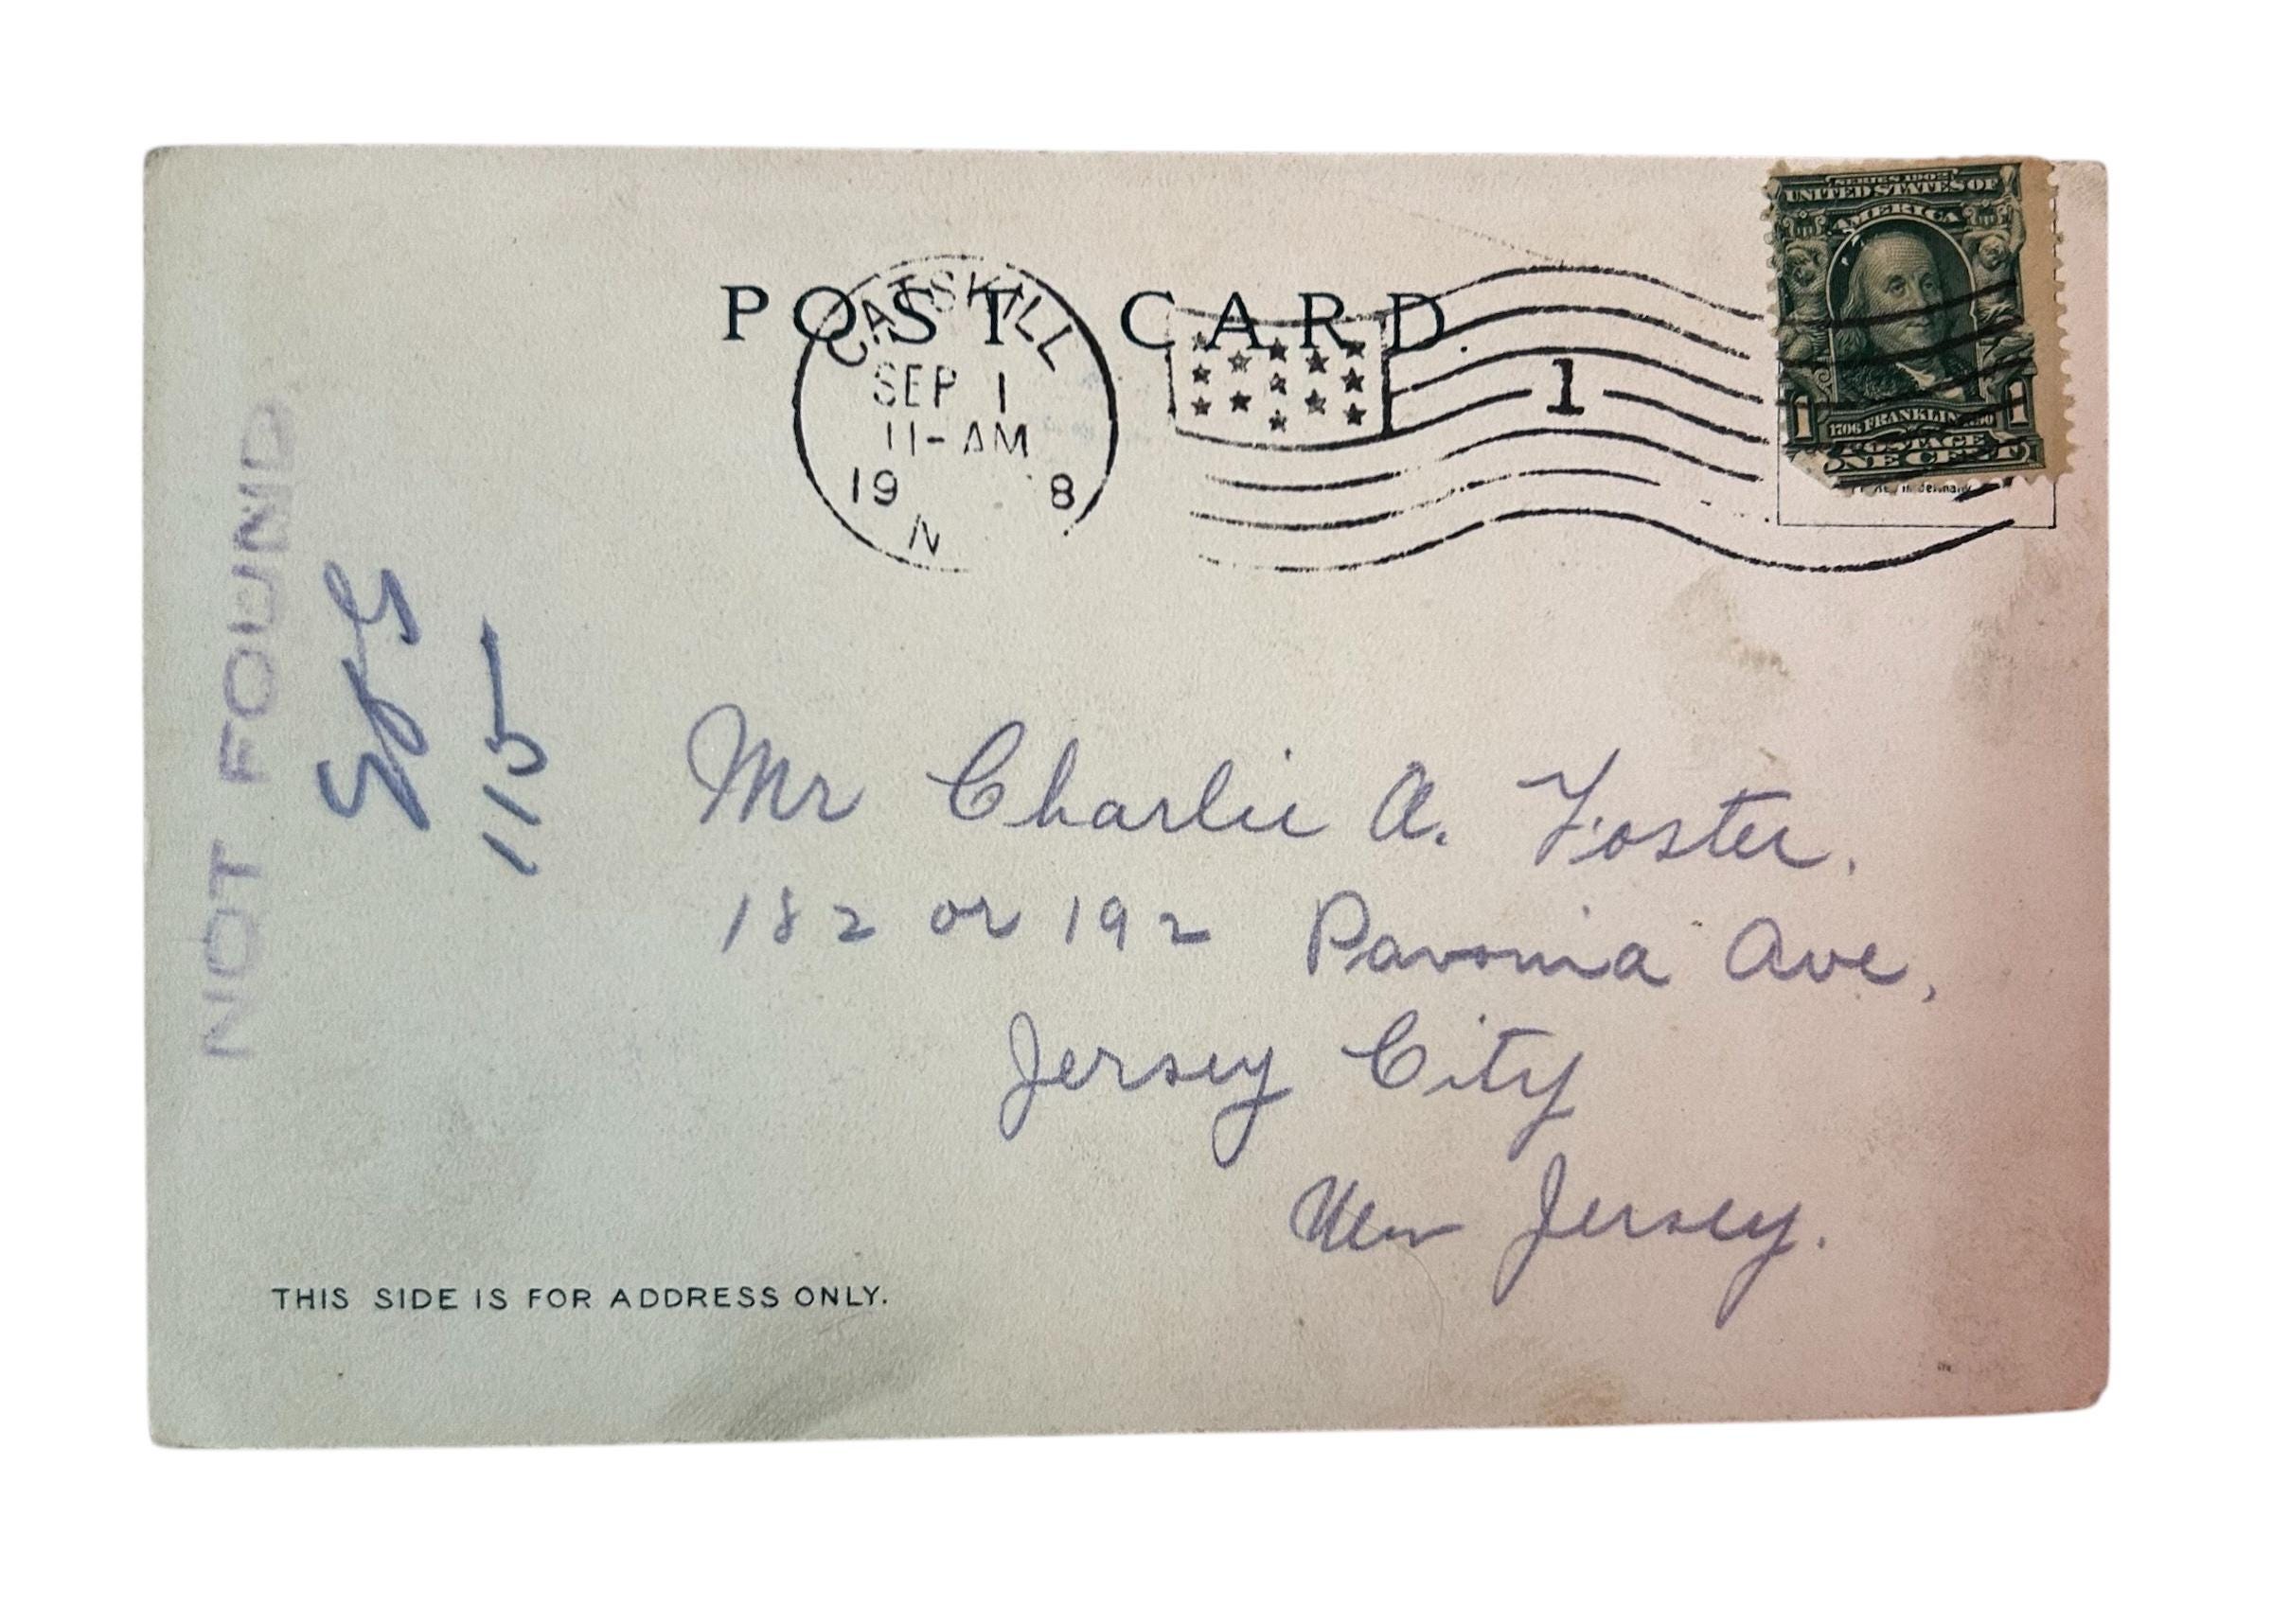 POST CARD
CATSKILL
SEP 1
11-AM
19 8
N
1
SERIES 1902
UNITED STATES OF
AMERICA
1 1
1706 FRANKLIN 1790
POSTAGE
ONE CENT
NOT FOUND
115
Mr Charlie A. Foster.
182 or 192 Pavonia Ave,
Jersey City
New Jersey.
THIS SIDE IS FOR ADDRESS ONLY.